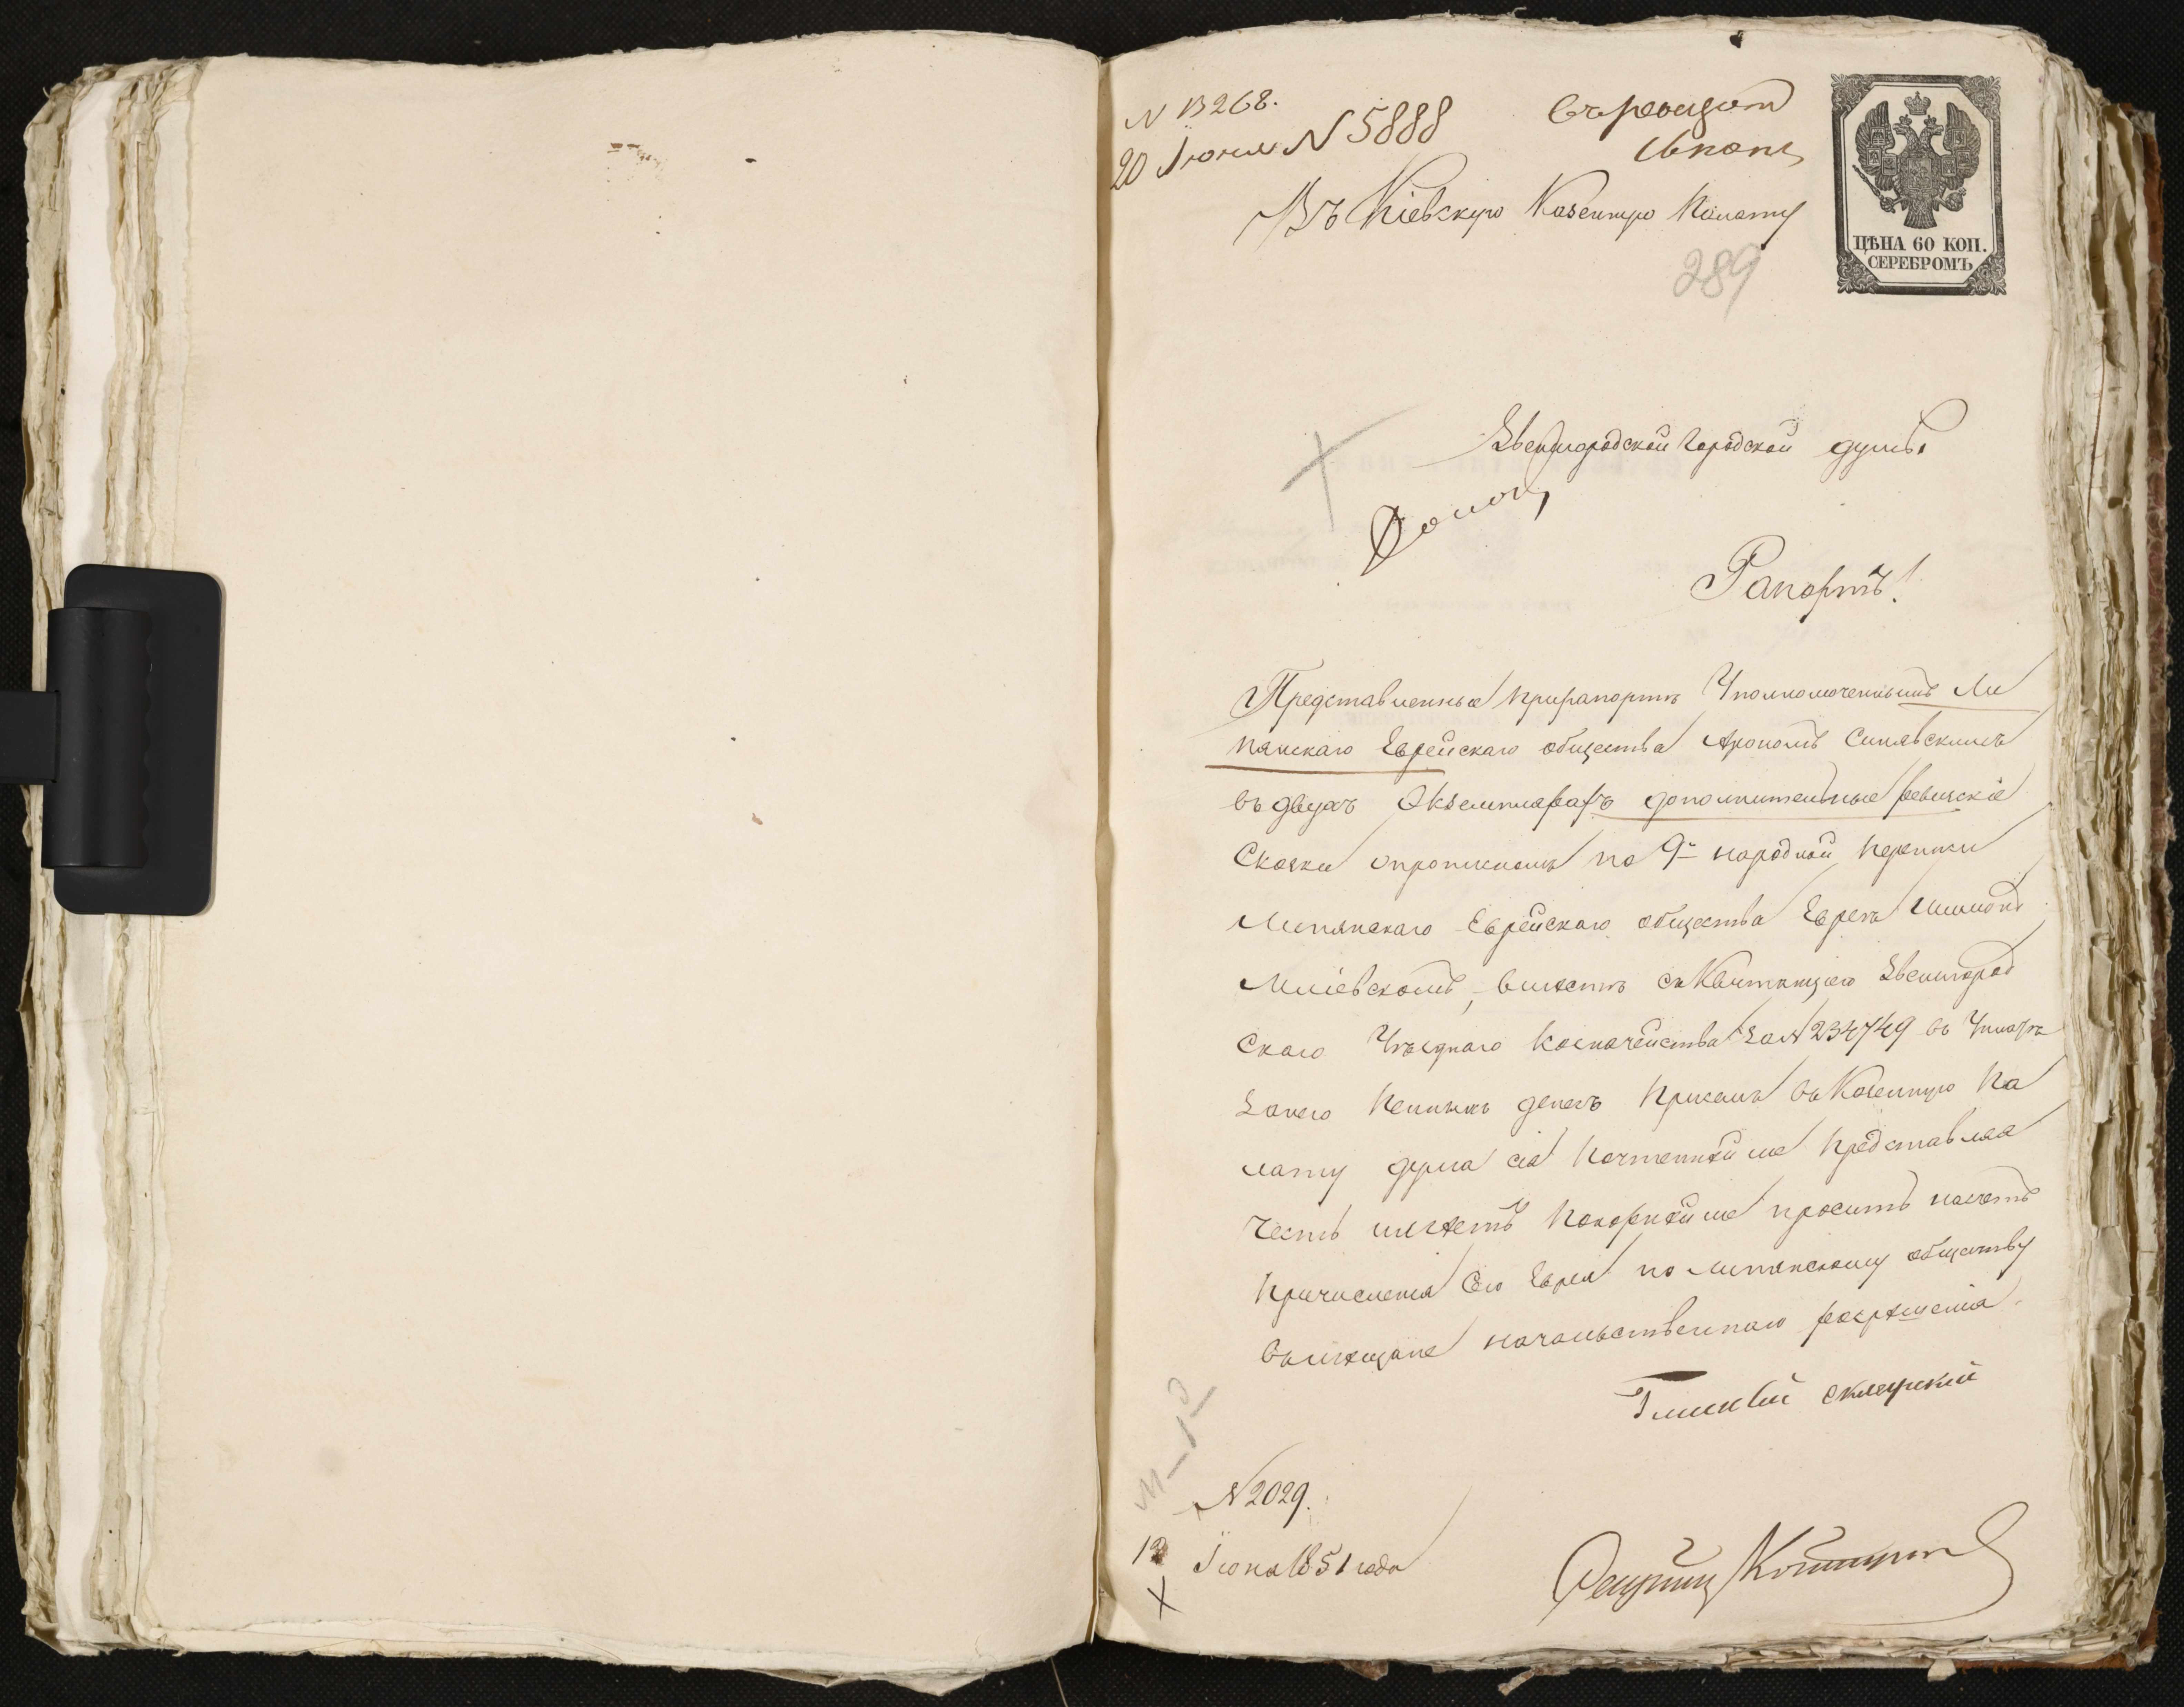 N 13268.
20 Іюня N 5888
Въ Кіевскую Казенную Палату
289
ЦѢНА 60 КОП.
СЕРЕБРОМЪ
Звенигородской Городской думы
Рапортъ!
Представленные при рапортѣ Уполномоченнымъ Ли
пянскаго Еврейскаго общества Арономъ Синявскимъ
въ двухъ Экземплярахъ дополнительные ревизскіе
Сказки о пропискомъ по 9й народной переписи
Липянскаго Еврейскаго общества Евреѣ
Мліевскомъ, вмѣстѣ съ Квитанцiею Звенигород
скаго Уѣзднаго Казначейства за N 234749 въ
за него денегъ въ Казенную Па
лату дума сія Почтеннѣйше представляя
честь имѣетъ покорнѣйше проситъ насчетъ
причисленія Сего Еврея по липянскому обществу
въ мѣщане начальственнаго разрѣшенія.
N 2029.
Іюня 1851 года